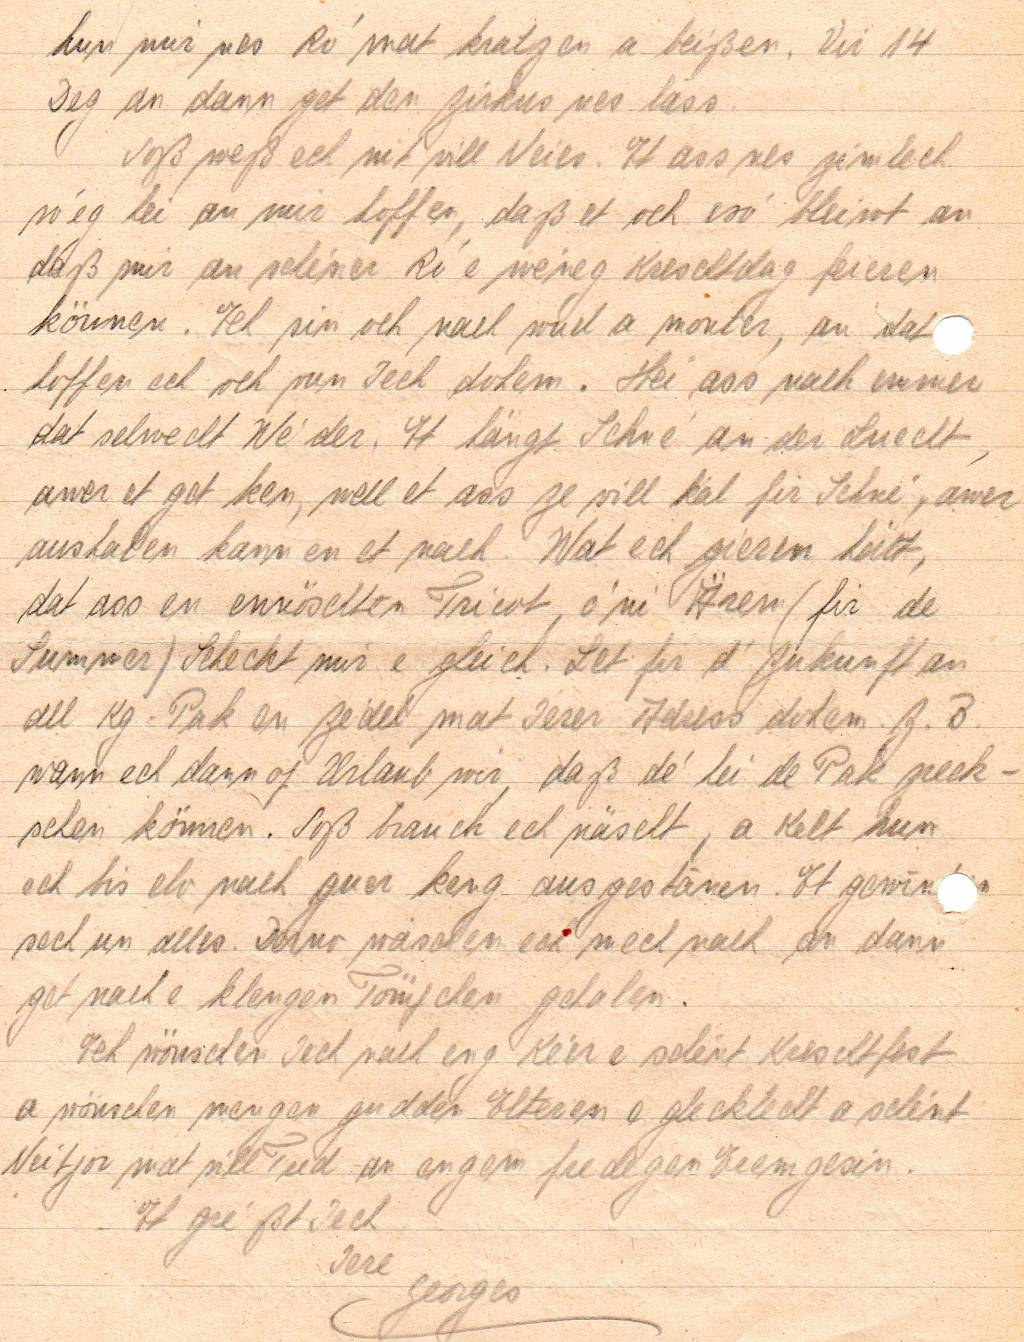 hun mir nes Ró mat kratzen a beißen. Vir 14
Deg an dann get den Zirkus nes lass.
Soß weß ech nit vill Neies. Et ass nes zimlech
ró eg hei an mir hoffen, daß et och esó bleiwt an
daß mir an schéner Ró e wéneg Kreschtdag feieren
können. Ech sin och nach rud a monter, an dat
hoffen ech och vun Iech dohem. Hei ass nach emmer
dat selwecht Wé der. Et längt Schné an der Luecht,
awer et get ken, well et ass ze vill kal fir Schné, awer
aushalen kann en et nach. Wat ech gieren hätt,
dat ass en Tricot, ó ni Ärem (fir de
Summer) Scheckt mir e gleich. Let fir d' Zukunft an
all Kg-Pak en Zédel mat Ierer Adress dohem. z. B.
wann ech dann of Urlaub wir, daß dé hei de Pak zreck-
schen können. Soß brauch ech näscht, a Kelt hun
ech bis elo nach guer keng ausgestanen. Et
sech un alles. Derno wäschen ech mech nach an dann
get nach e klengen gehalen.
Ech wönschen Iech nach eng Kéier e schént Kreschtfest
a wönschen mengen gudden Elteren e glecklecht a schént
Neitjor mat vill Freed an engem fredegen Eremgesin.
Et gré ßt Iech
Iere
Georges